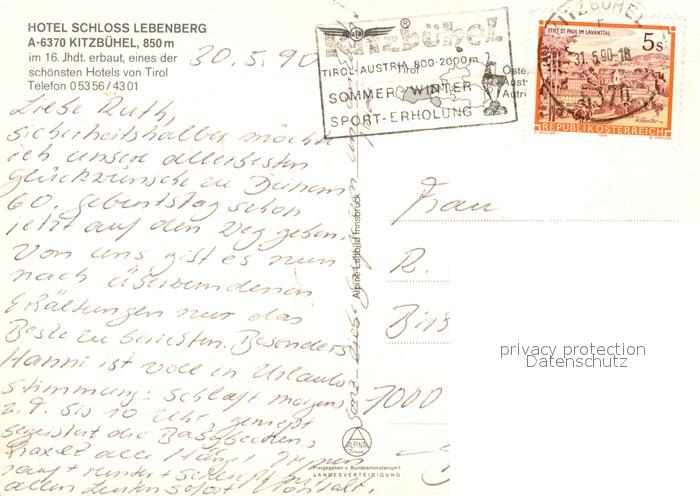 HOTEL SCHLOSS LEBENBERG
A-6370 KITZBÜHEL, 850 m
im 16. Jhdt. erbaut, eines der
schönsten Hotels von Tirol
Telefon 0 53 56 / 43 01
30.5.90
Kitzbühel
TIROL-AUSTRIA 800-2000m
SOMMER/WINTER
SPORT-ERHOLUNG
Tirol
STIFT ST. PAUL IM LAVANTTAL
5 S
KITZBÜHEL
31.5.90-18
6370
REPUBLIK ÖSTERREICH
Liebe Ruth,
sicherheitshalber möchte
ich unsere allerbesten
Glückwünsche zu Deinem
60. Geburtstag schon
jetzt auf den Weg geben.
Von uns gibt es nun
nach überwundenen
Erkältungen nur das
Beste zu berichten. Besonders
Hanni ist voll in Urlaubs
stimmung: schläft morgens
z.T. bis 10 Uhr, genießt
begeistert die
alle
rauf + runter +
allen Leuten sofort
Alpine Luftbild Innsbruck
Frau
R.
7000
ALPINE
Freigegeben v. Bundesministerium f.
LANDESVERTEIDIGUNG
privacy protection
Datenschutz